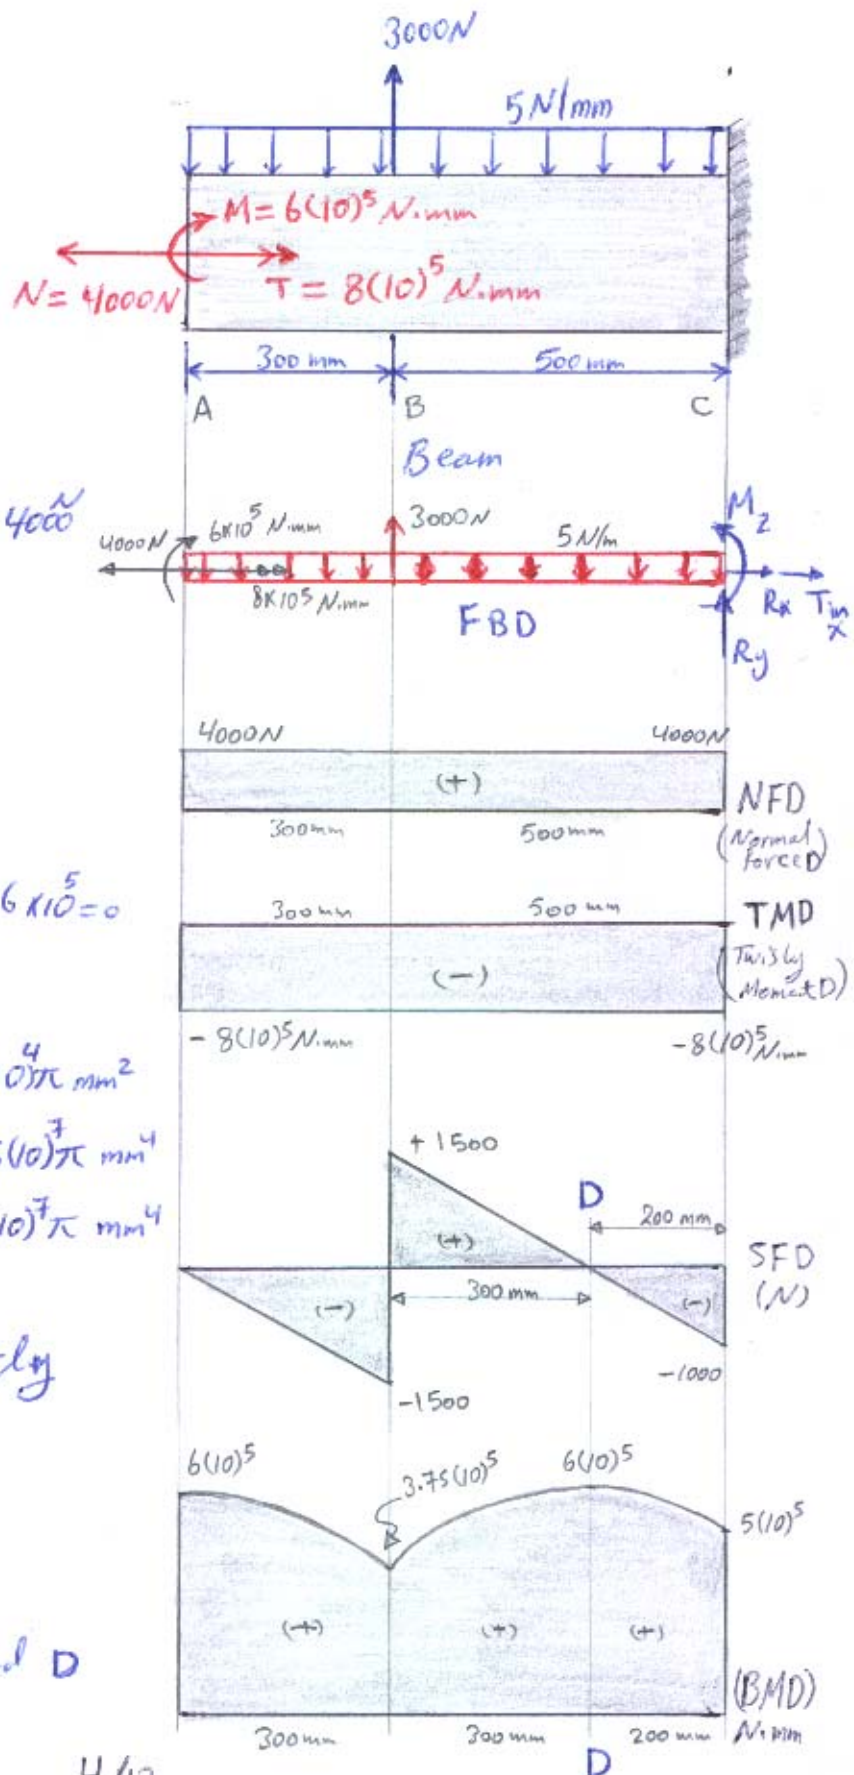 3000N
5N/mm
M = 6(10)⁵ N.mm
N = 4000N
T = 8(10)⁵ N.mm
300mm 500mm
A B C
Beam
4000N
4000N 6x10⁵ N.mm 3000N 5N/m M₂
8x10⁵ N.mm
FBD
Rx T in x
Ry
4000N 4000N
(+)
NFD
300mm 500mm
(Normal Force D)
6 x10⁵ = 0
300mm 500mm TMD
(-)
- 8(10)⁵ N.mm -8(10)⁵ N.mm
0)⁴π mm²
(10)⁷π mm⁴
10)⁷π mm⁴
+ 1500
D
200 mm
(+)
SFD
(N)
300mm
(-) (-)
-1500
-1000
6(10)⁵ 3.75(10)⁵ 6(10)⁵
5(10)⁵
(+) (+) (+)
D
(BMD)
300mm 300mm 200mm N.mm
D